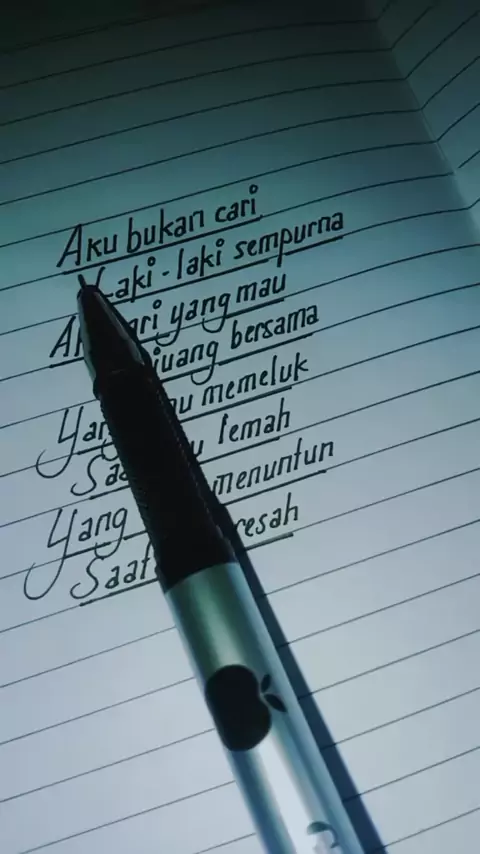 Aku bukan cari
Laki-laki sempurna
yang mau
bersama
Yang memeluk
lemah
Yang menuntun
Saat resah